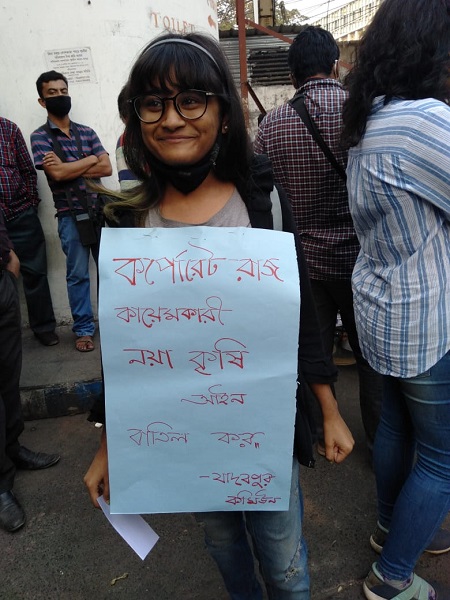 TOILET
কর্পোরেট রাজ
কায়েমকারী
নয়া কৃষি
আইন
বাতিল কর,
-যাদবপুর
কমিউন